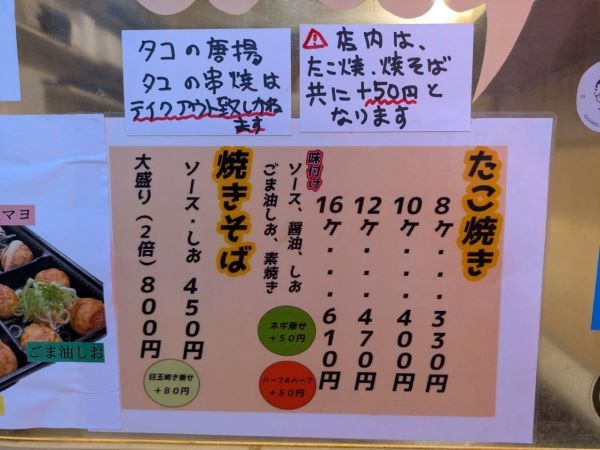 タコの唐揚
タコの串焼は
テイクアウト致しかね
ます
⚠店内は、
たこ焼、焼そば
共に+50円と
なります
たこ焼き
8ヶ・・・330円
10ヶ・・・400円
12ヶ・・・470円
16ヶ・・・610円
味付け
ソース、醤油、しお
ごま油しお、素焼き
ネギ乗せ
+50円
ハーフ&ハーフ
+50円
焼きそば
ソース・しお 450円
大盛り（2倍）800円
目玉焼き乗せ
+80円
マヨ
ごま油しお